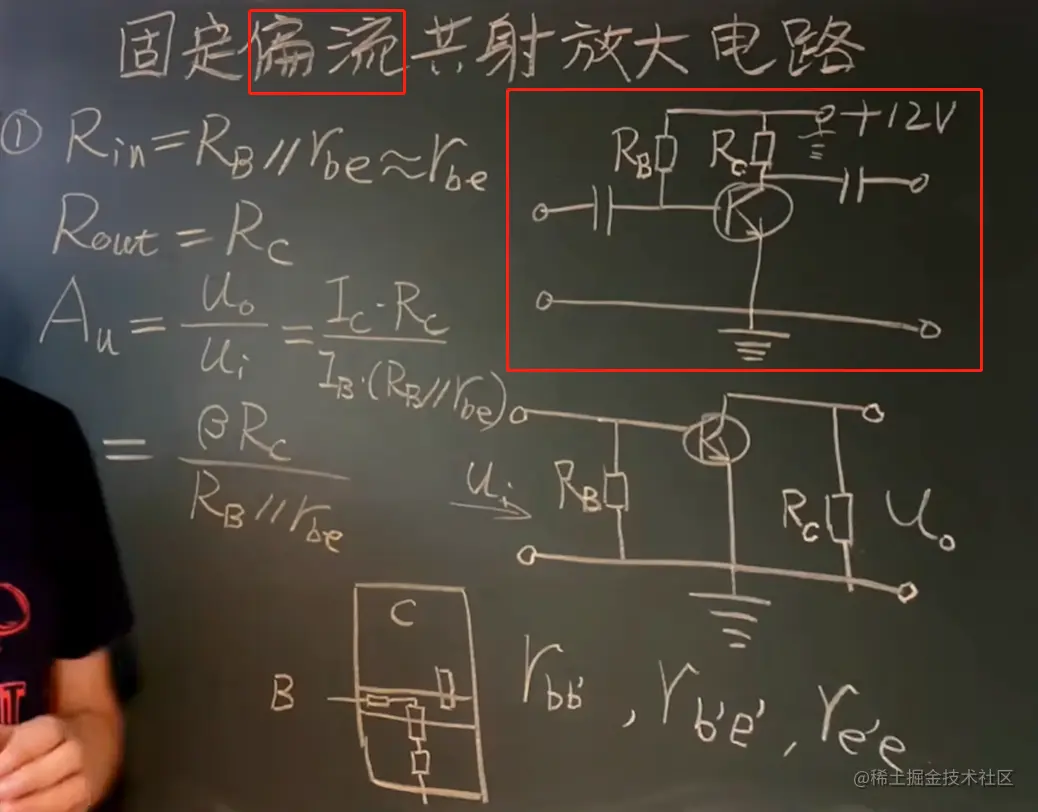 固定偏流共射放大电路
① Rin=RB//rbe≈rbe
Rout=RC
Au=uo/ui=IC·RC/IB·(RB//rbe)
=βRC/RB//rbe
+12V
RB
RC
ui
RB
RC
Uo
C
B
rbb', rb'e', re'e
@稀土掘金技术社区